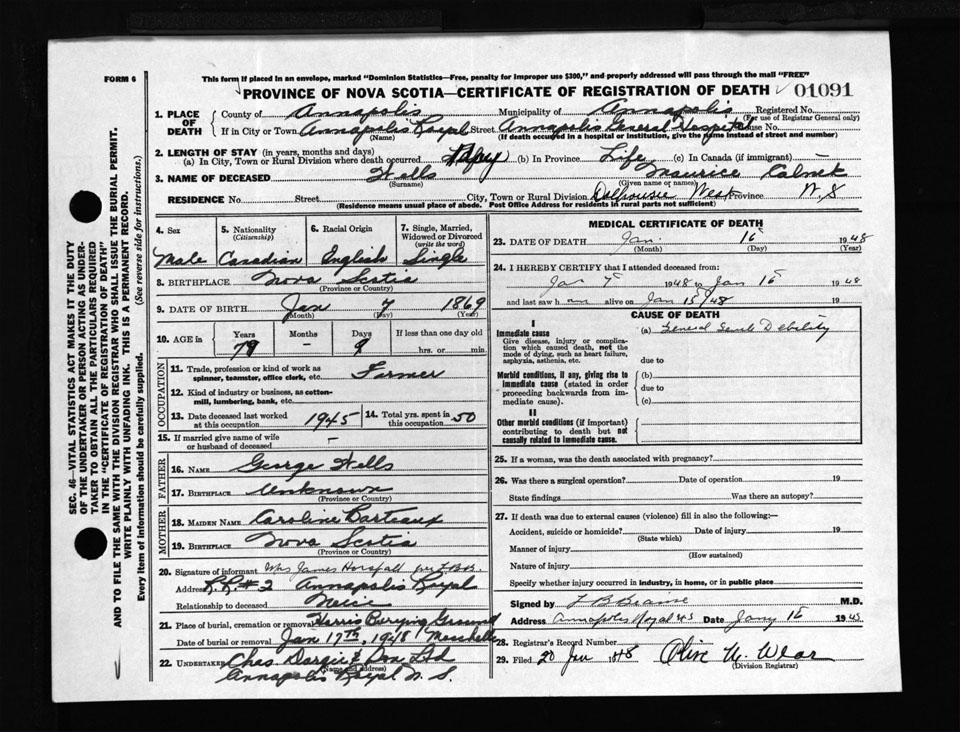 FORM 6
This form if placed in an envelope, marked "Dominion Statistics—Free, penalty for improper use $300," and properly addressed will pass through the mail "FREE"
PROVINCE OF NOVA SCOTIA—CERTIFICATE OF REGISTRATION OF DEATH 01091
1. PLACE OF DEATH County of Annapolis Municipality of Annapolis Registered No.
(For use of Registrar General only)
If in City or Town Annapolis Royal Street Annapolis General Hospital House No.
(Name) (If death occurred in a hospital or institution, give the name instead of street and number)
2. LENGTH OF STAY (in years, months and days)
(a) In City, Town or Rural Division where death occurred (b) In Province Life (c) In Canada (if immigrant)
3. NAME OF DECEASED Wells Maurice Calnek
(Surname) (Given name or names)
RESIDENCE No. Street City, Town or Rural Division Dalhousie West Province N.S
(Residence means usual place of abode. Post Office Address for residents in rural parts not sufficient)
4. Sex 5. Nationality (Citizenship) 6. Racial Origin 7. Single, Married, Widowed or Divorced (write the word)
Male Canadian English Single
8. BIRTHPLACE Nova Scotia
(Province or Country)
9. DATE OF BIRTH Jan 7 1869
(Month) (Day) (Year)
10. AGE in Years Months Days If less than one day
79 – 9 hrs. or min.
OCCUPATION
11. Trade, profession or kind of work as spinner, teamster, office clerk, etc. Farmer
12. Kind of industry or business, as cotton-mill, lumbering, bank, etc.
13. Date deceased last worked at this occupation 1945 14. Total yrs. spent in this occupation 50
15. If married give name of wife or husband of deceased –
FATHER
16. NAME George Wells
17. BIRTHPLACE Unknown
(Province or Country)
MOTHER
18. MAIDEN NAME Caroline Barteaux
19. BIRTHPLACE Nova Scotia
(Province or Country)
20. Signature of informant Mrs James Horsfall per
Address R.R.#2 Annapolis Royal
Relationship to deceased Neice
21. Place of burial, cremation or removal Harris Burying Ground
Date of burial or removal Jan 17th, 1948 Moschelle
22. UNDERTAKER Chas Dargie & Son Ltd
(Name and address)
Annapolis Royal N. S.
MEDICAL CERTIFICATE OF DEATH
23. DATE OF DEATH Jan. 15 1948
(Month) (Day) (Year)
24. I HEREBY CERTIFY that I attended deceased from:
Jan 1948 to Jan 15 1948
and last saw h alive on Jan 15/48 19
CAUSE OF DEATH
I
Immediate cause (a) General Senile Debility
Give disease, injury or complication which caused death, not the mode of dying, such as heart failure, asphyxia, asthenia, etc. due to
Morbid conditions, if any, giving rise to immediate cause (stated in order proceeding backwards from immediate cause). (b) due to (c)
II
Other morbid conditions (if important) contributing to death but not causally related to immediate cause.
25. If a woman, was the death associated with pregnancy?
26. Was there a surgical operation? Date of operation 19
State findings Was there an autopsy?
27. If death was due to external causes (violence) fill in also the following:—
Accident, suicide or homicide? Date of injury 19
(State which)
Manner of injury
(How sustained)
Nature of injury
Specify whether injury occurred in industry, in home, or in public place
Signed by L B Braine M.D.
Address Annapolis Royal NS Date Jany 15 1948
28. Registrar's Record Number
29. Filed 20 Jan 1948 Olive M. Wear
(Division Registrar)
SEC. 46—VITAL STATISTICS ACT MAKES IT THE DUTY
OF THE UNDERTAKER OR PERSON ACTING AS UNDER-
TAKER TO OBTAIN ALL THE PARTICULARS REQUIRED
IN THE "CERTIFICATE OF REGISTRATION OF DEATH"
AND TO FILE THE SAME WITH THE DIVISION REGISTRAR WHO SHALL ISSUE THE BURIAL PERMIT.
WRITE PLAINLY WITH UNFADING INK. THIS IS A PERMANENT RECORD.
Every item of information should be carefully supplied. (See reverse side for instructions.)